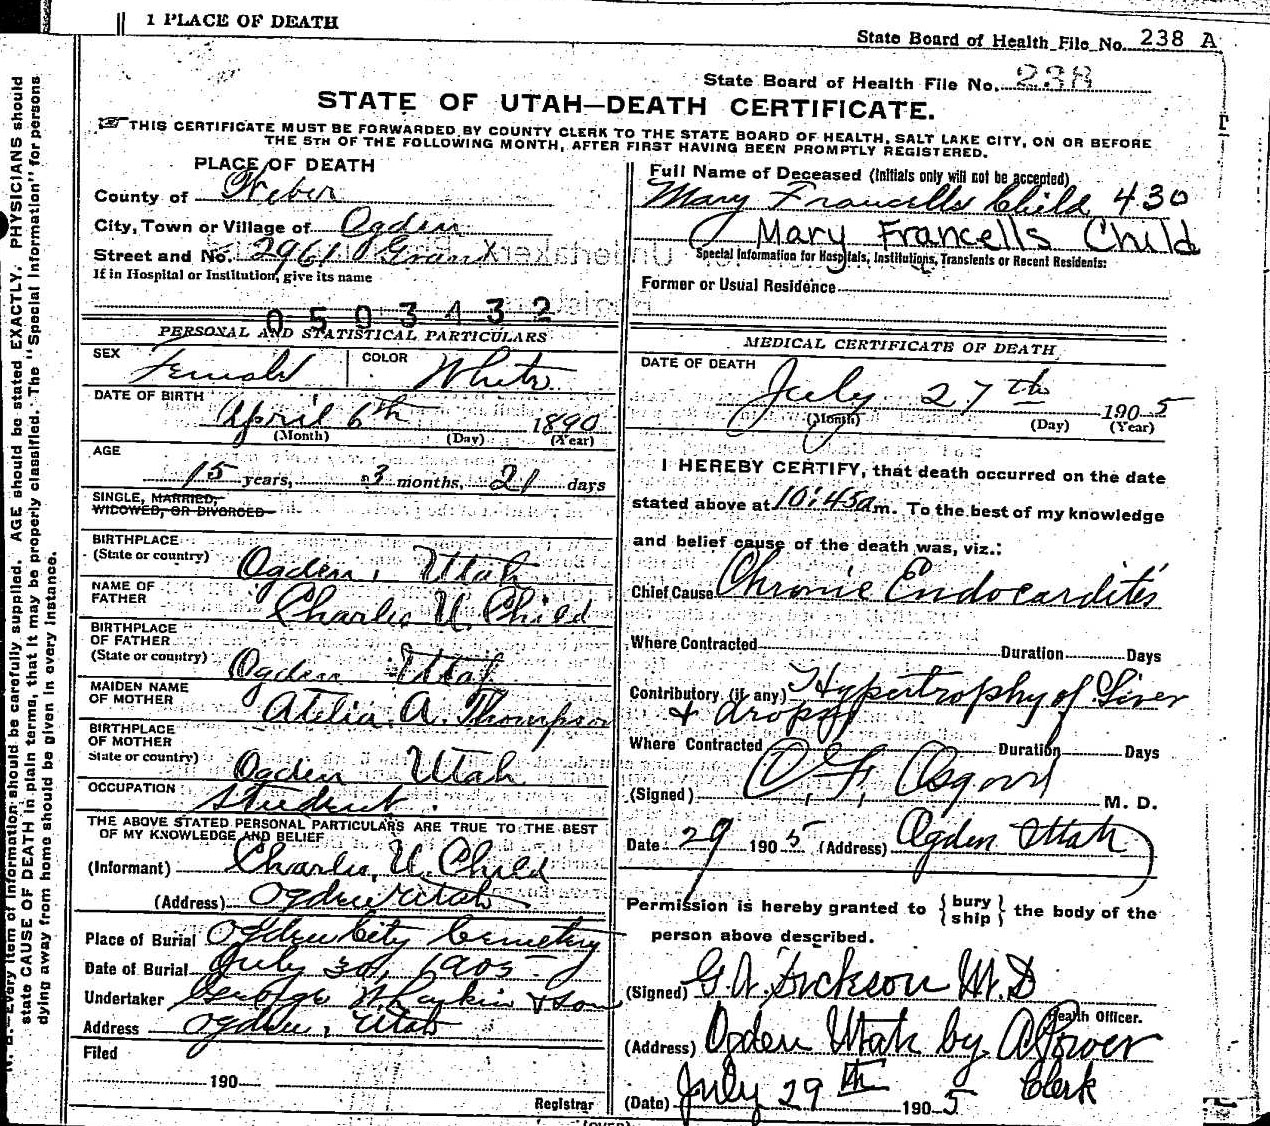 1 PLACE OF DEATH
State Board of Health File No. 238 A
State Board of Health File No. 238
STATE OF UTAH—DEATH CERTIFICATE.
THIS CERTIFICATE MUST BE FORWARDED BY COUNTY CLERK TO THE STATE BOARD OF HEALTH, SALT LAKE CITY, ON OR BEFORE
THE 5TH OF THE FOLLOWING MONTH, AFTER FIRST HAVING BEEN PROMPTLY REGISTERED.
PLACE OF DEATH
County of Weber
City, Town or Village of Ogden
Street and No. 2961 Grant
If in Hospital or Institution, give its name
0503432
PERSONAL AND STATISTICAL PARTICULARS
SEX Female COLOR White
DATE OF BIRTH
April 6th 1890
(Month) (Day) (Year)
AGE
15 years, 3 months, 21 days
SINGLE, MARRIED,
WIDOWED, OR DIVORCED
BIRTHPLACE
(State or country) Ogden, Utah
NAME OF
FATHER Charles U. Child
BIRTHPLACE
OF FATHER
(State or country) Ogden Utah
MAIDEN NAME
OF MOTHER Atelia. A. Thompson
BIRTHPLACE
OF MOTHER
State or country) Ogden Utah
OCCUPATION Student.
THE ABOVE STATED PERSONAL PARTICULARS ARE TRUE TO THE BEST
OF MY KNOWLEDGE AND BELIEF
(Informant) Charles, U. Child
(Address) Ogden Utah
Place of Burial Ogden City Cemetery
Date of Burial July 30, 1905
Undertaker George W Larkin & Son
Address Ogden, Utah
Filed
190
Registrar
Full Name of Deceased (Initials only will not be accepted)
Mary Francells Child 430
Mary Francells Child
Special Information for Hospitals, Institutions, Transients or Recent Residents:
Former or Usual Residence
MEDICAL CERTIFICATE OF DEATH
DATE OF DEATH
July 27th 1905
(Month) (Day) (Year)
I HEREBY CERTIFY, that death occurred on the date
stated above at 10:45 a m. To the best of my knowledge
and belief cause of the death was, viz.:
Chief Cause Chronic Endocarditis
Where Contracted Duration Days
Contributory (if any) Hypertrophy of Liver
& dropsy
Where Contracted Duration Days
(Signed) O. F. Osgood M. D.
Date 29 1905 (Address) Ogden Utah
Permission is hereby granted to {bury
ship} the body of the
person above described.
(Signed) G. W. Dickson M. D
Health Officer.
(Address) Ogden Utah by A Power
Clerk
(Date) July 29th 1905
(OVER)
N. B. Every item of information should be carefully supplied. AGE should be stated EXACTLY. PHYSICIANS should
state CAUSE OF DEATH in plain terms, that it may be properly classified. The "Special Information" for persons
dying away from home should be given in every instance.